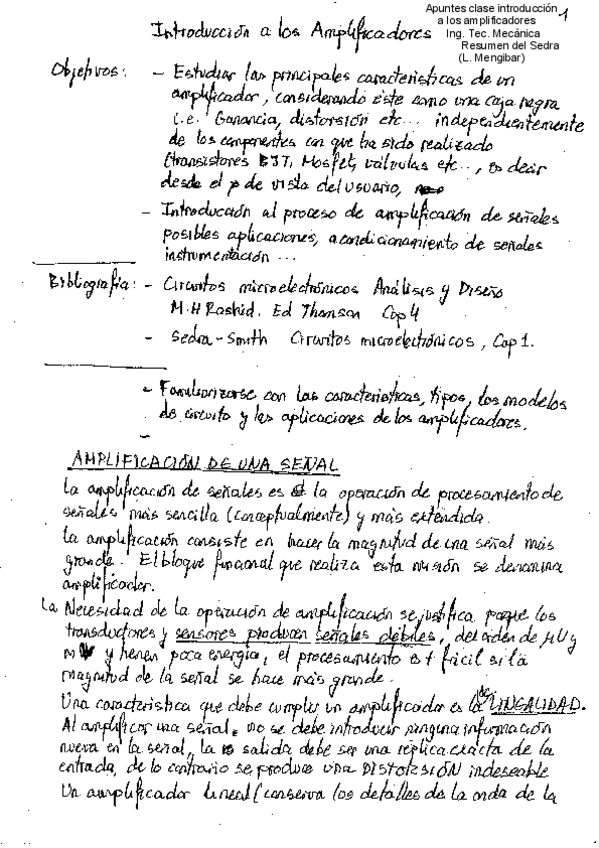 Apuntes clase introducción
a los amplificadores
Ing. Tec. Mecánica
Resumen del Sedra
(L. Mengibar)
1
Introducción a los Amplificadores
Objetivos: - Estudiar las principales características de un
amplificador, considerando éste como una caja negra
i.e. Ganancia, distorsión etc... independientemente
de los componentes con que ha sido realizado
(transistores BJT, Mosfet, válvulas etc.., es decir
desde el p de vista del usuario,
- Introducción al proceso de amplificación de señales
posibles aplicaciones, acondicionamiento de señales
instrumentación ...
Bibliografía: - Circuitos microelectrónicos Análisis y Diseño
M.H Rashid. Ed Thomson Cap 4
- Sedra-Smith Circuitos microelectrónicos, Cap 1.
- Familiarizarse con las características, tipos, los modelos
de circuito y las aplicaciones de los amplificadores.
-
AMPLIFICACIÓN DE UNA SEÑAL
La amplificación de señales es la operación de procesamiento de
señales más sencilla (conceptualmente) y más extendida.
La amplificación consiste en hacer la magnitud de una señal más
grande. El bloque funcional que realiza esta misión se denomina
amplificador.
La Necesidad de la operación de amplificación se justifica porque los
transductores y sensores producen señales débiles, del orden de μV y
mV y tienen poca energía, el procesamiento es + fácil si la
magnitud de la señal se hace más grande.
Una característica que debe cumplir un amplificador es la de LINEALIDAD.
Al amplificar una señal, no se debe introducir ninguna información
nueva en la señal, la salida debe ser una réplica exacta de la
entrada, de lo contrario se produce una DISTORSIÓN indeseable
Un amplificador lineal (conserva los detalles de la onda de la